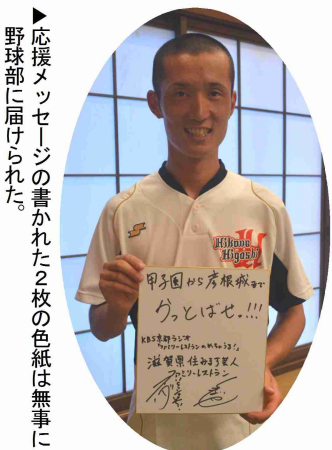 ▶応援メッセージの書かれた２枚の色紙は無事に
野球部に届けられた。
Hikone
Higashi
甲子園から彦根城まで
かっとばせ!!!
KBS京都ラジオ
滋賀県住みます芸人
ファミリーレストラン